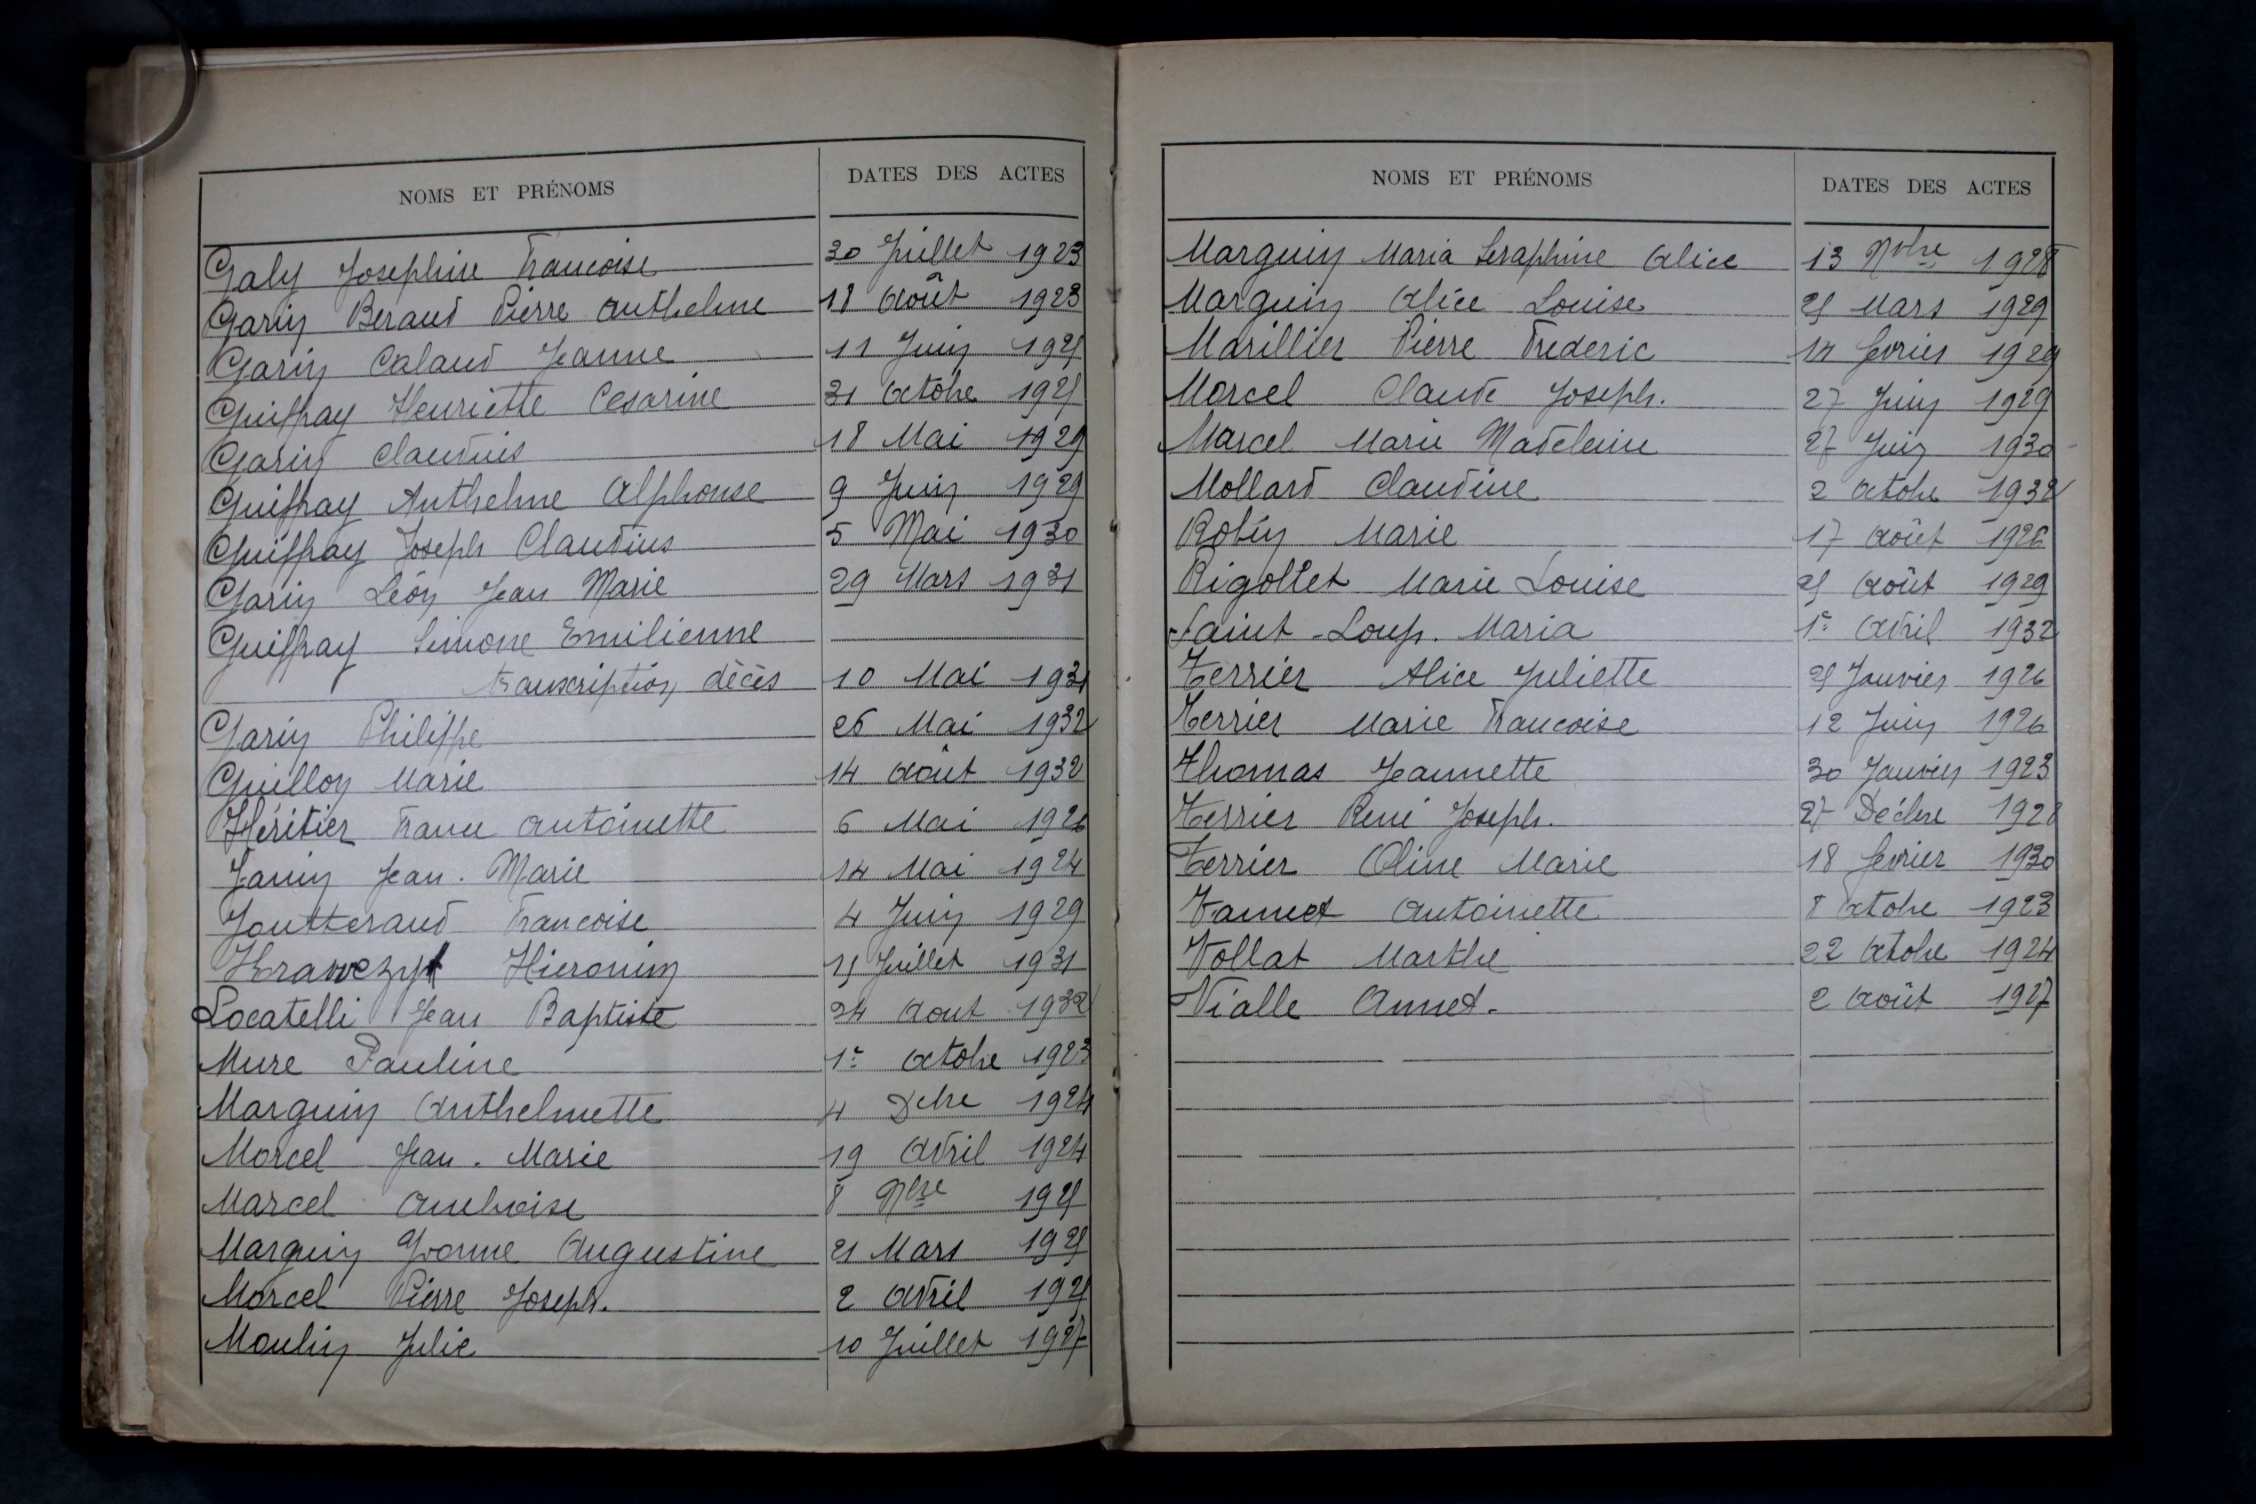 NOMS ET PRÉNOMS DATES DES ACTES
Galy Josephine Francoise 30 Juillet 1923
Garin Beraud Pierre Anthelme 18 Août 1923
Garin Calaud Jeanne 11 Juin 1925
Guiffray Henriette Cesarine 31 Octobre 1925
Garin Claudius 18 Mai 1929
Guiffray Anthelme Alphonse 9 Juin 1929
Guiffray Joseph Claudius 5 Mai 1930
Garin Léon Jean Marie 29 Mars 1931
Guiffray Simone Emilienne
transcription décès 10 Mai 1931
Garin Philippe 26 Mai 1932
Guillon Marie 14 Août 1932
Héritier Antoinette 6 Mai 1926
Janin Jean. Marie 14 Mai 1924
Joutteraud Francoise 4 Juin 1929
Krawczyk Hieronim 15 Juillet 1931
Locatelli Jean Baptiste 24 Aout 1932
Mure Pauline 1er Octobre 1923
Marguin Anthelmette 4 Dbre 1924
Morcel Jean. Marie 19 Avril 1924
Marcel Ambroise 8 1925
Marguin Yvonne Augustine 21 Mars 1925
Morcel Pierre Joseph. 2 Avril 1925
Moulin Julie 10 Juillet 1927
NOMS ET PRÉNOMS DATES DES ACTES
Marguin Maria Seraphine Alice 13 Nobre 1928
Marguin Alice Louise 25 Mars 1929
Marillier Pierre Frederic 14 fevrier 1929
Morcel Claude Joseph. 27 Juin 1929
Marcel Marie Madeleine 27 Juin 1930
Mollard Claudine 2 Octobre 1932
Robin Marie 17 Août 1926
Rigollet Marie Louise 25 Août 1929
Saint-Loup. Maria 1er Avril 1932
Terrier Alice Juliette 25 Janvier 1926
Terrier Marie Francoise 12 Juin 1926
Thomas Jeannette 30 Janvier 1923
Terrier René Joseph. 27 Décbre 1928
Terrier Céline Marie 18 fevrier 1930
Vannet Antoinette 8 Octobre 1923
Vollat Marthe 22 Octobre 1924
Vialle Annet. 2 Août 1927